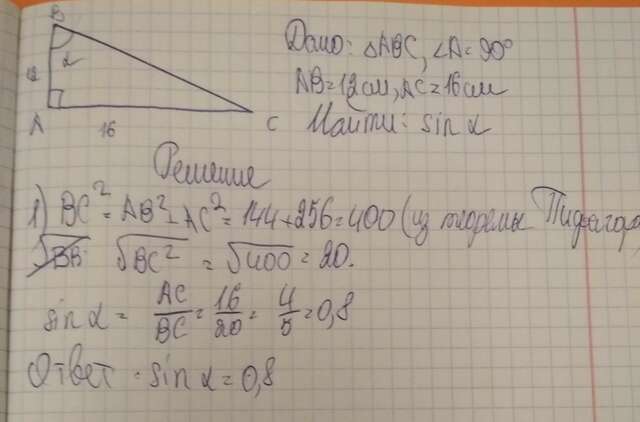 B
α
12
A
16
C
Дано: △ABC, ∠A=90°
AB=12см, AC=16см
Найти: sin α
Решение
1) BC² = AB²+AC² = 144+256=400 (из теоремы Пифагора
√BC² = √400 = 20.
sin α = AC/BC = 16/20 = 4/5 = 0,8
Ответ: sin α = 0,8